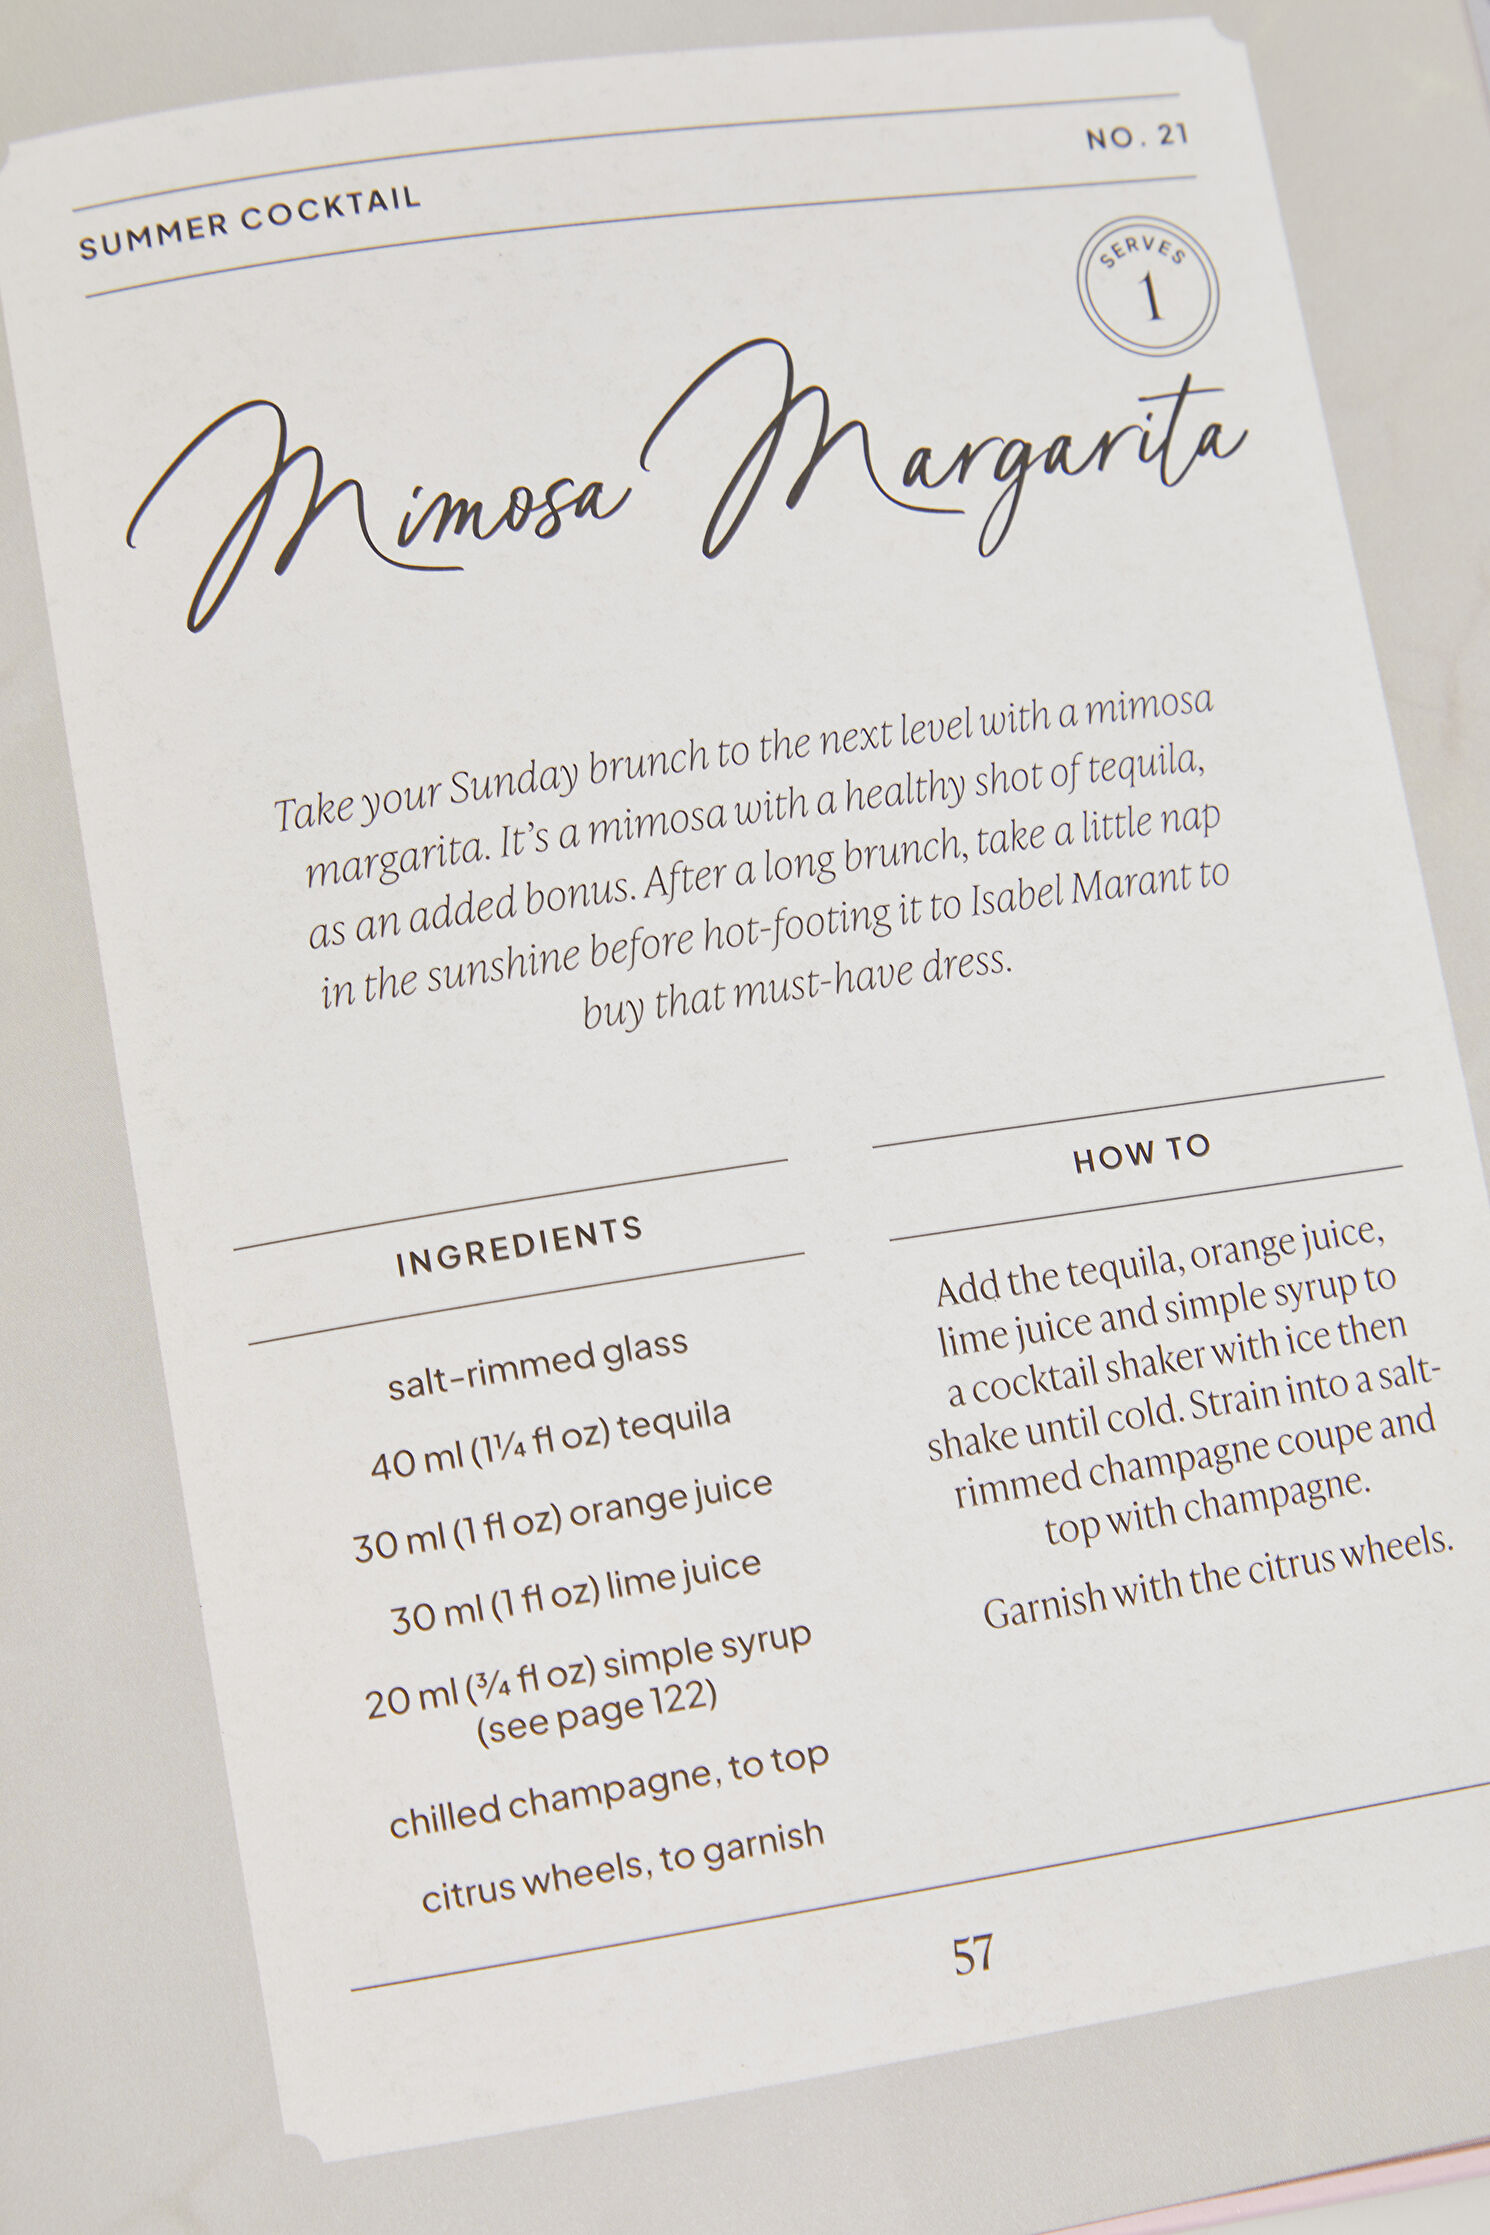 SUMMER COCKTAIL
NO. 21
SERVES
1
Mimosa Margarita
Take your Sunday brunch to the next level with a mimosa
margarita. It’s a mimosa with a healthy shot of tequila,
as an added bonus. After a long brunch, take a little nap
in the sunshine before hot-footing it to Isabel Marant to
buy that must-have dress.
INGREDIENTS
salt-rimmed glass
40 ml (1¼ fl oz) tequila
30 ml (1 fl oz) orange juice
30 ml (1 fl oz) lime juice
20 ml (¾ fl oz) simple syrup
(see page 122)
chilled champagne, to top
citrus wheels, to garnish
HOW TO
Add the tequila, orange juice,
lime juice and simple syrup to
a cocktail shaker with ice then
shake until cold. Strain into a salt-
rimmed champagne coupe and
top with champagne.
Garnish with the citrus wheels.
57